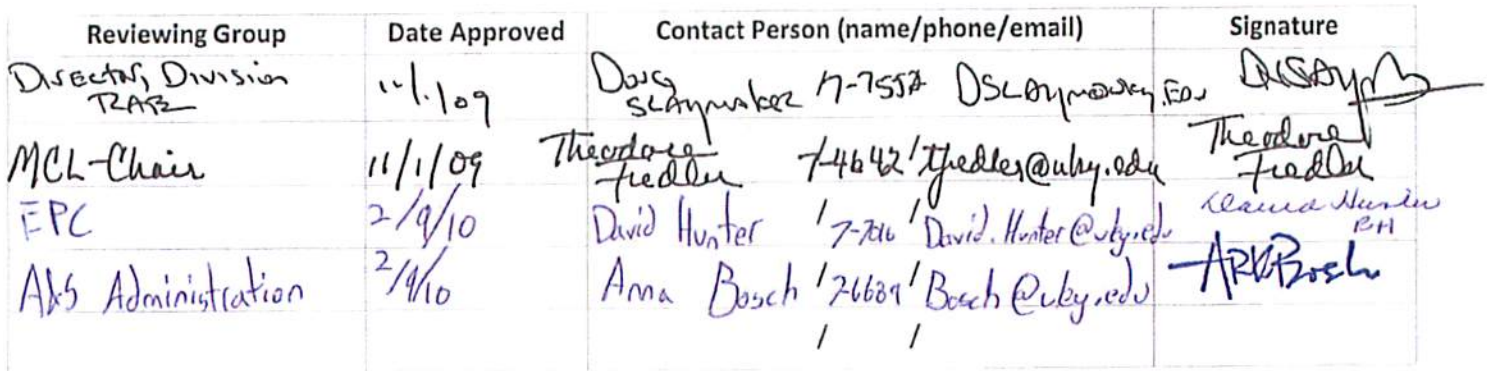 Reviewing Group Date Approved Contact Person (name/phone/email) Signature
Director, Division 11/1/09 Doug Slaymaker 7-7552
MCL-Chair 11/1/09 Theodore Fiedler 7-4642 / tfiedler@uky.edu Theodore Fiedler
EPC 2/9/10 David Hunter / 7-7016 / David.Hunter@uky.edu David Hunter BH
A&S Administration 2/9/10 Anna Bosch / 7-6689 / Bosch@uky.edu ARKBosch
/ /